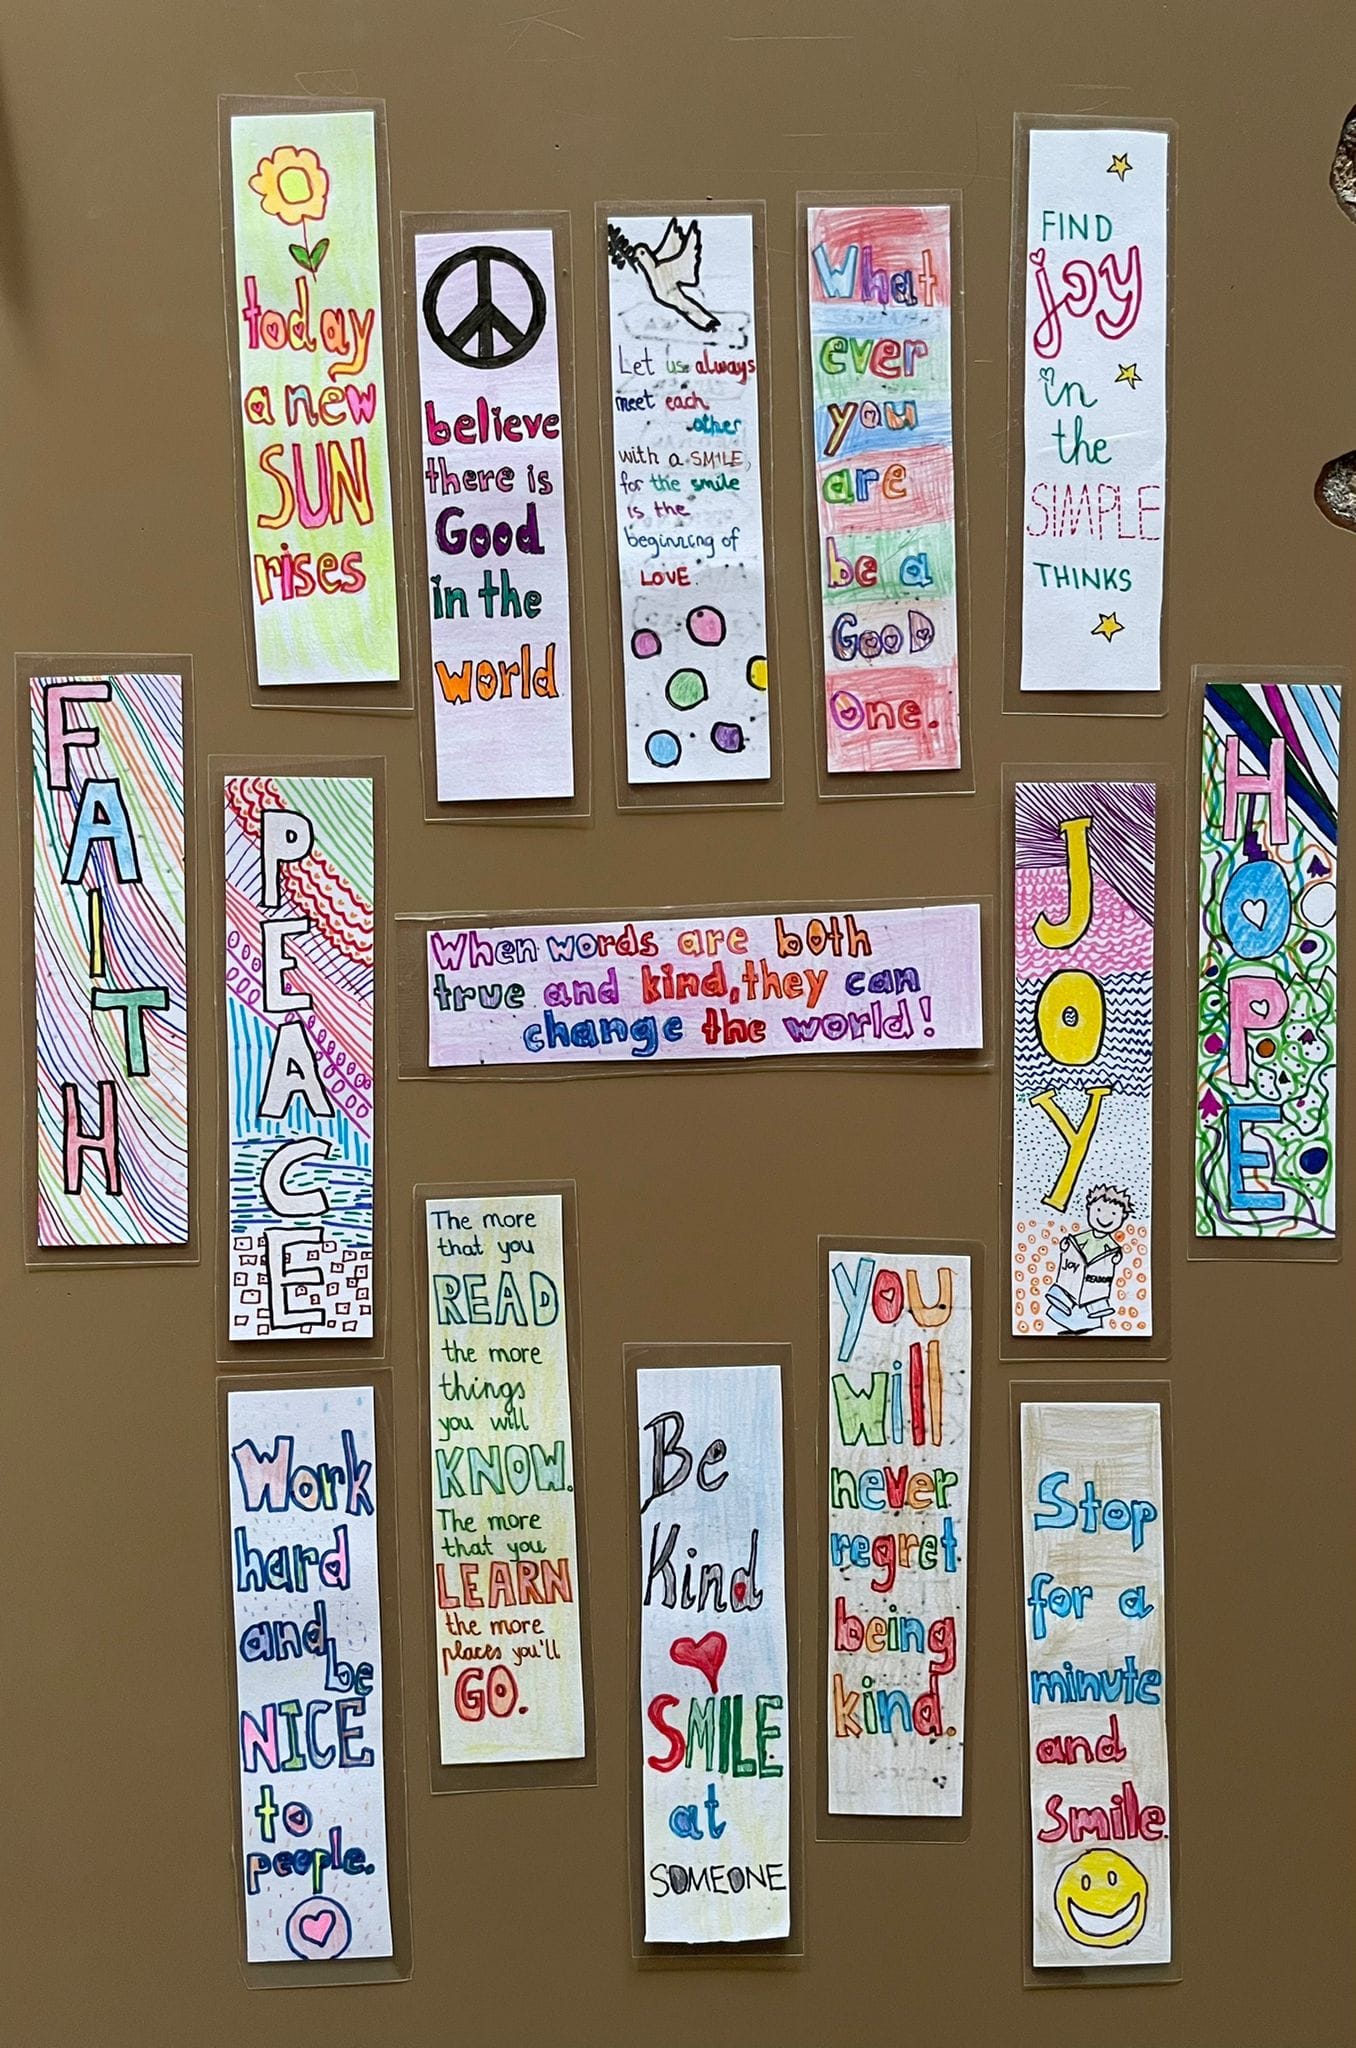 today
a new
SUN
rises
believe
there is
Good
in the
world
Let us always
meet each
other
with a SMILE,
for the smile
is the
beginning of
LOVE.
What
ever
you
are
be a
GOOD
One.
FIND
joy
in
the
SIMPLE
THINKS
FAITH
PEACE
When words are both
true and kind, they can
change the world!
JOY
JOY
READING
HOPE
Work
hard
and
be
NICE
to
people.
The more
that you
READ
the more
things
you will
KNOW.
The more
that you
LEARN
the more
places you'll
GO.
Be
Kind
SMILE
at
SOMEONE
you
will
never
regret
being
kind.
Stop
for a
minute
and
Smile.